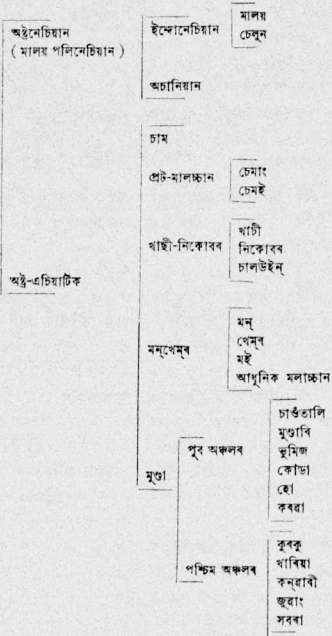 অষ্ট্ৰনেচিয়ান
( মালয় পলিনেচিয়ান )
ইন্দোনেচিয়ান
মালয়
চেলুন
অচানিয়ান
অষ্ট্ৰ-এচিয়াটিক
চাম
প্ৰট-মালচ্চান
চেমাং
চেমই
খাছী-নিকোবৰ
খাচী
নিকোবৰ
চালউইন্
মন্‌খেম্‌ৰ
মন্
খেম্‌ৰ
মই
আধুনিক মলাচ্চান
মুণ্ডা
পূব অঞ্চলৰ
চাওঁতালি
মুণ্ডাৰি
ভূমিজ
কোডা
হো
কৰৱা
পশ্চিম অঞ্চলৰ
কুৰকু
খাৰিয়া
কন্‌ৱাৰী
জুৱাং
সবৰা